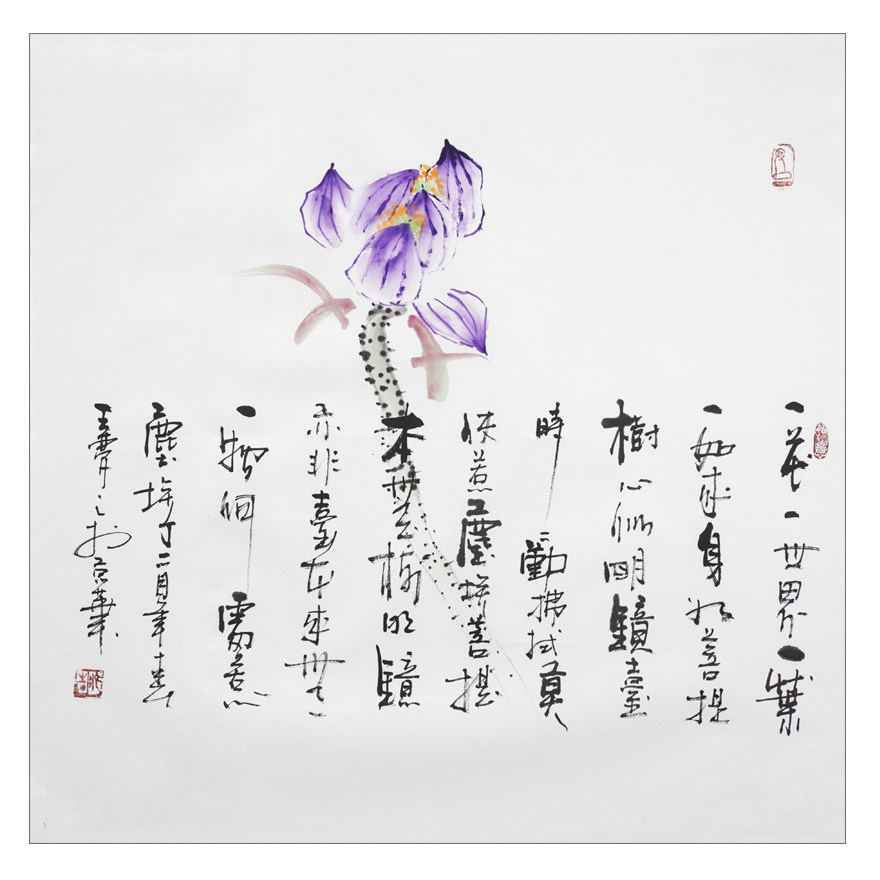 一花一世界一葉
一如來身如菩提
樹心似明鏡臺
時時勤拂拭莫
使惹塵埃菩提
本無樹明鏡
亦非臺本來無
一物何處惹
塵埃丁酉年春
於京華